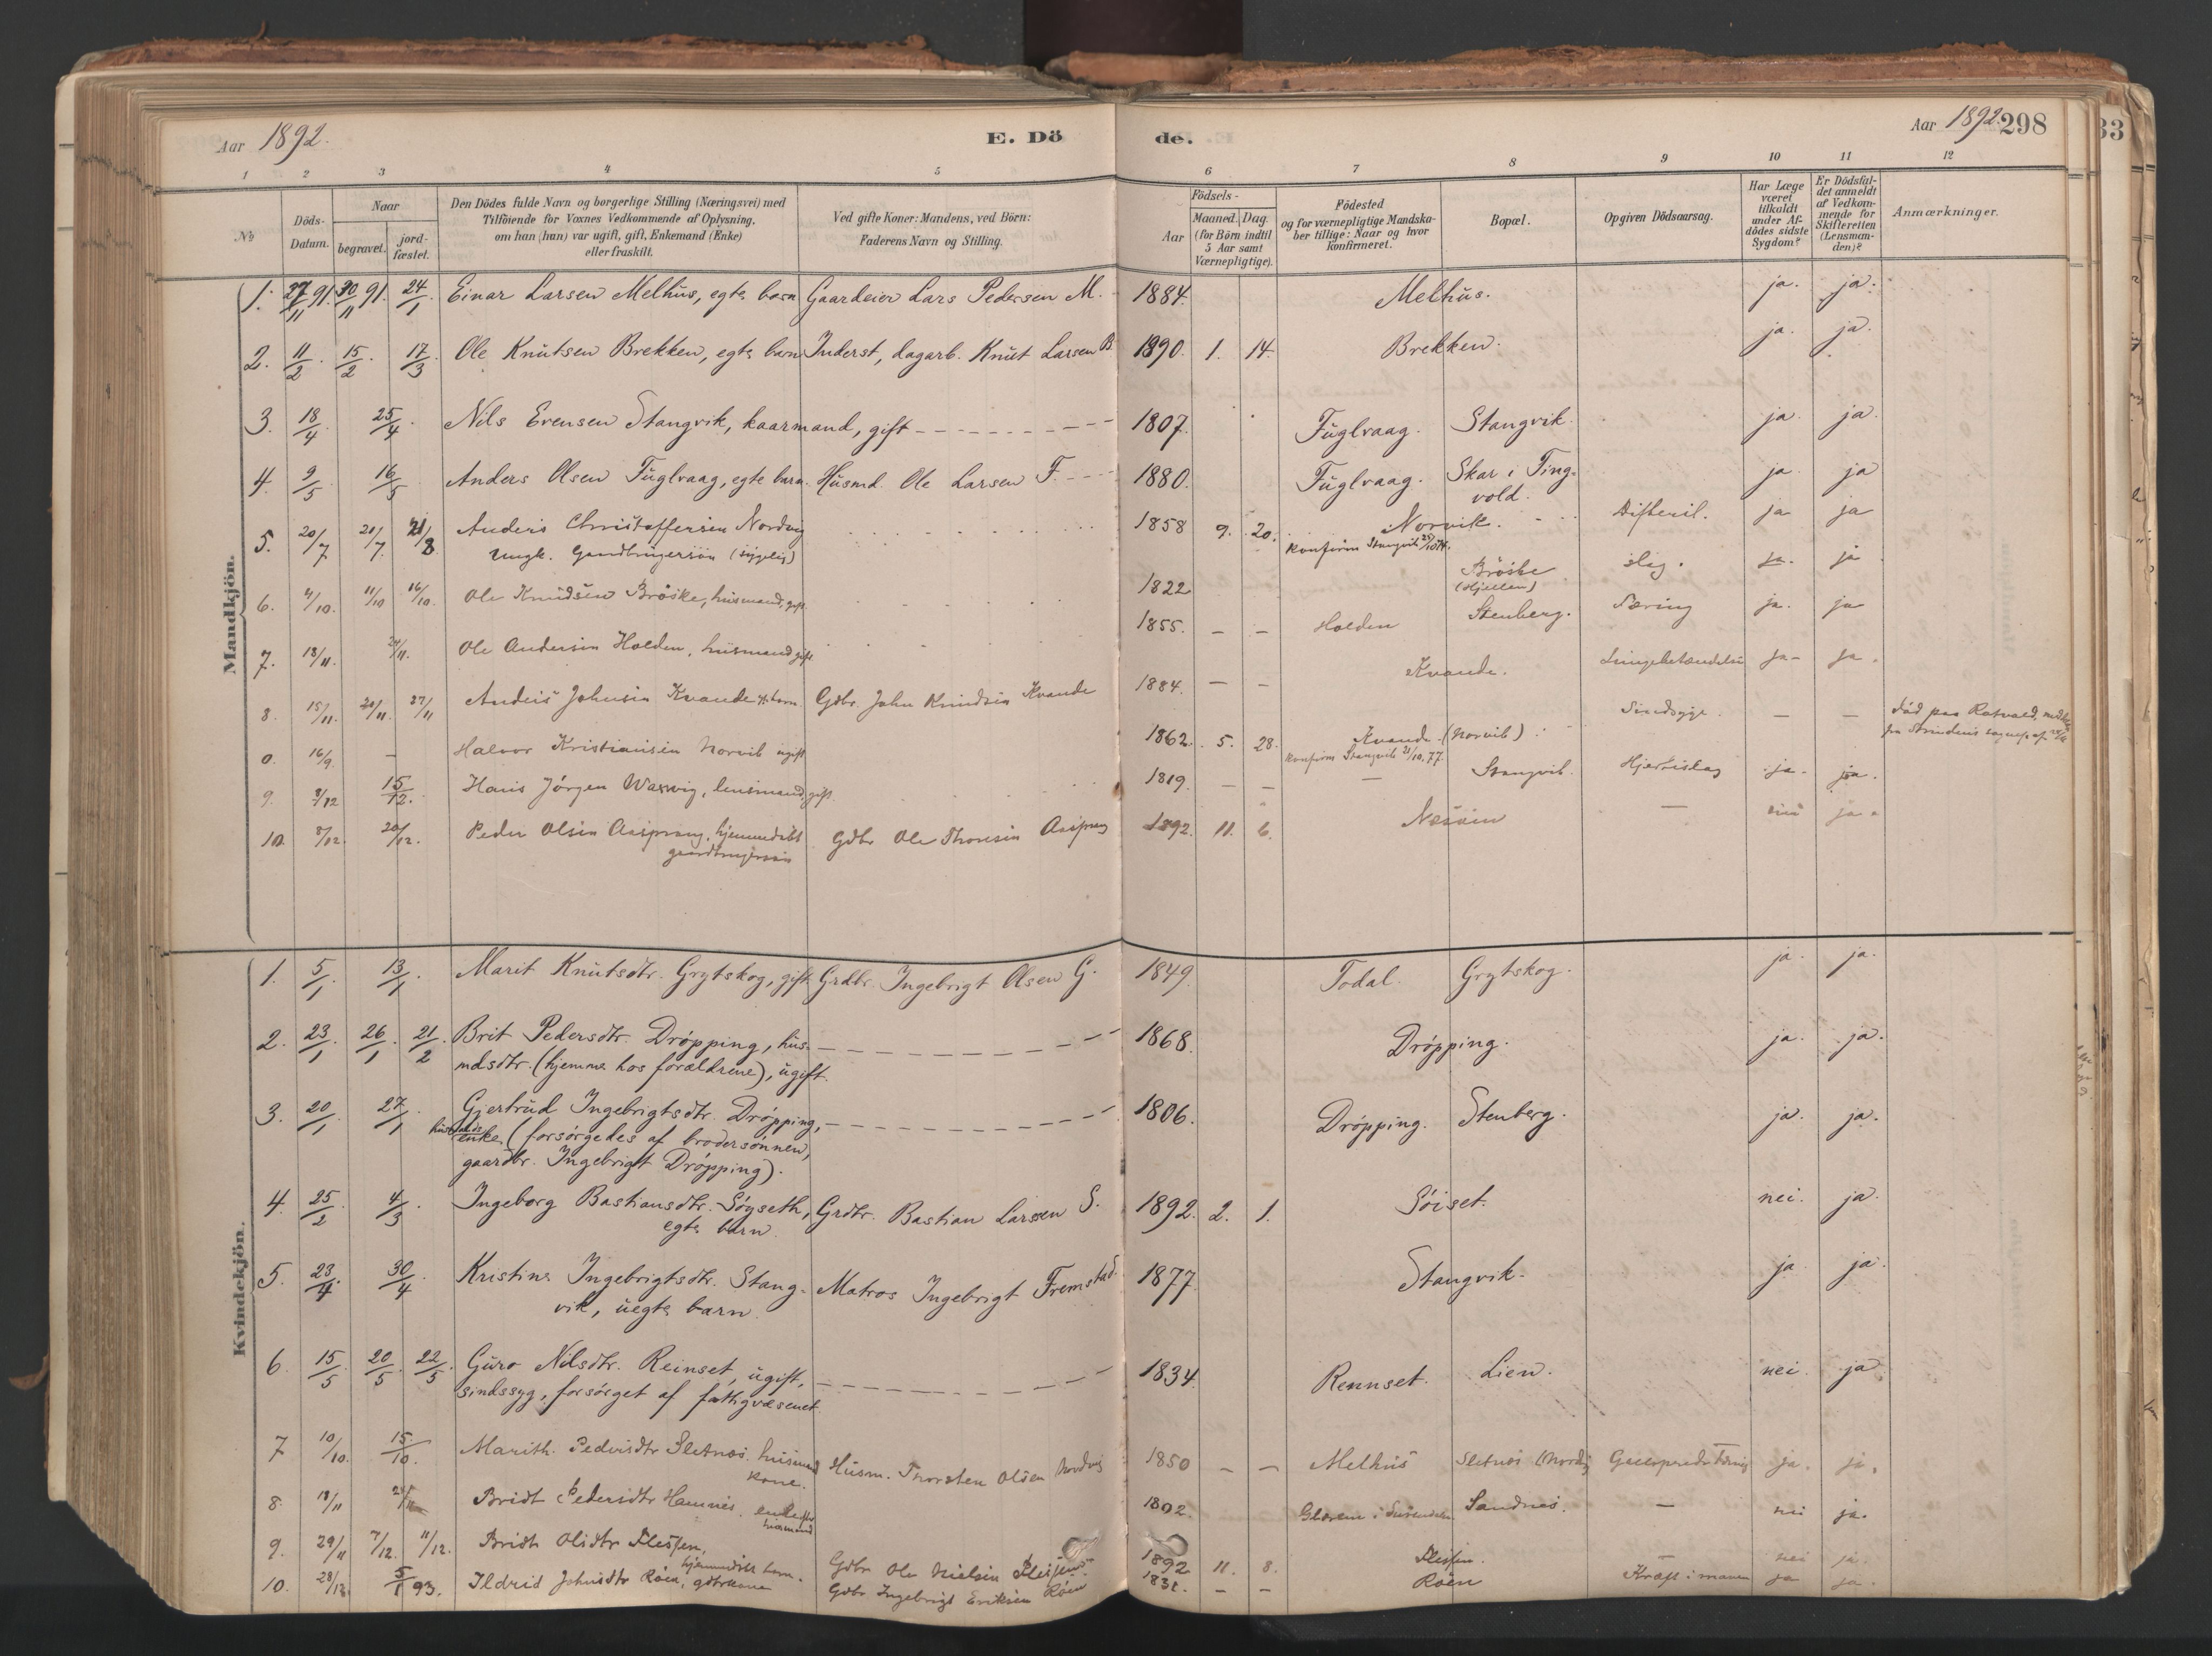 Aar 1892. E. Dö de. Aar 1892. 298
33
1 2 3 4 5 6 7 8 9 10 11 12
No
Döds-
Datum.
Naar
begravet.
jord-
fæstet.
Den Dödes fulde Navn og borgerlige Stilling (Næringsvei) med
Tilföiende for Voxnes Vedkommende af Oplysning,
om han (hun) var ugift, gift, Enkemand (Enke)
eller fraskilt.
Ved gifte Koner: Mandens, ved Börn:
Faderens Navn og Stilling.
Födsels-
Aar
Maaned. Dag.
(for Börn indtil
5 Aar samt
Værnepligtige).
Födested
og for værnepligtige Mandska-
ber tillige: Naar og hvor
konfirmeret.
Bopæl.
Opgiven Dödsaarsag.
Har Læge
været
tilkaldt
under Af-
dödes sidste
Sygdom?
Er Dödsfal-
det anmeldt
af Vedkom-
mende for
Skifteretten
(Lensman-
den)?
Anmærkninger.
Mandkjön.
1. 27/11 91. 30/11 91. 24/1. Einar Larsen Melhus, egte barn Gaardeier Lars Pedersen M. 1884. Melhus. ja. ja.
2. 11/2. 15/2. 17/3 Ole Knutsen Brekken, egte barn Inderst, dagarb. Knut Larsen B. 1890. 1. 14. Brekken. ja. ja.
3. 18/4. 25/4. Nils Evensen Stangvik, kaarmand, gift 1807. Fuglvaag. Stangvik. ja. ja.
4. 9/5. 16/5. Anders Olsen Fuglvaag, egte barn. Husmd. Ole Larsen F. 1880. Fuglvaag. Skar i Ting-
vold. ja. ja
5. 20/7 21/7. 21/8 Anders Christoffersen Nordvig 1858 9. 20. Norvik. Difterit. ja ja
Ungk. Gaardbrugersøn (sygelig) Konfirm Stangvik
6. 9/10. 11/10 16/10. Ole Knudsen Brøske, husmand, gift. 1822 Brøske
(Hjellen) slag. ja. ja
7. 18/11. 24/11. Ole Andersen Holden, husmand gift 1855. – – Holden Stenberg. Tæring ja. ja
8. 15/11. 20/11. 27/11 Anders Johnsen Kvande, barn. Gdbr. John Knudsen Kvande 1884. – – Kvande. Lungebetændelse ja – ja.
0. 16/9. – Halvor Kristiansen Norvik ugift 1862. 5. 28. Kvande (Norvik) Sindsyge. – – død paa Rotvold,
Konfirm Stangvik 21/10, 77.
9. 8/12 15/12. Hans Jørgen Waswig, lensmand, gift. 1819. – – – Stangvik. Hjerteslag ja. ja.
10. 8/12. 20/12. Peder Olsen Aasprang, hjemmedøbt Gdbr Ole Thoresen Aasprang 1892. 11. 6. Næsøien – nei ja.
gaardbrugersøn
Kvindekjön.
1. 5/1. 13/1. Marit Knutsdtr. Grytskog, gift Grdbr. Ingebrigt Olsen G. 1849. Todal. Grytskog. ja. ja.
2. 23/1. 26/1. 21/2. Brit Pedersdtr. Drøpping, hus- 1868. Drøpping. ja. ja.
mdsdtr. (hjemme hos forældrene), ugift.
3. 20/1. 27/1. Gjertrud Ingebrigtsdtr. Drøpping, 1806. Drøpping. Stenberg. ja. ja.
husmands enke (forsørgedes af brodersønnen,
gaardbr. Ingebrigt Drøpping).
4. 25/2. 4/3. Ingeborg Bastiansdtr. Søyseth, Grdbr. Bastian Larsen S. 1892. 2. 1. Søiset. nei. ja.
egte barn.
5. 23/4. 30/4. Kristine Ingebrigtsdtr. Stang- Matros Ingebrigt Fremstad. 1877. Stangvik. ja. ja.
vik, uegte barn.
6. 15/5. 20/5. 22/5. Guro Nilsdtr. Reinset, ugift, 1834. Rennset. Lien. nei. ja.
sindssyg, forsørget af fattigvæsenet.
7 10/10. 15/10. Marith Pedersdtr Sletnes. husmands Husm. Thorsten Olsen Nordvig 1850 – – Melhus Sletnes (Nordvig) ja. ja.
kone.
8. 18/11 Bridt Pedersdtr Hamnes. enke efter 1802. i Surendalen Sandnes. – nei ja.
husmand
9. 29/11 7/12. 11/12. Bridt Olsdtr Flessen, Gdbr Ole Nielsen Flessen 1892 11. 8. Flessen. nei ja.
hjemmedøbt barn.
10. 28/12. 5/1 93. Ildrid Johnsdtr Røen, gdbrkone Gdbr Ingebrigt Eriksen Røen 1831. – – Røen Kræft i maven ja ja.